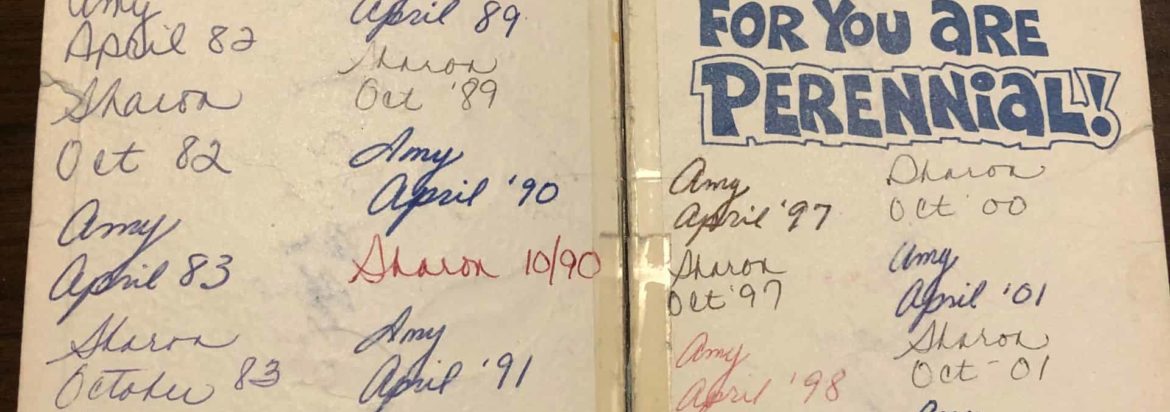 Amy
April 82
Sharon
Oct 82
Amy
April 83
Sharon
October 83
April 89
Sharon
Oct '89
Amy
April '90
Sharon 10/90
Amy
April '91
FOR YOU ARE
PERENNIAL!
Amy
April '97
Sharon
Oct '97
Amy
April '98
Sharon
Oct 00
Amy
April '01
Sharon
Oct-01